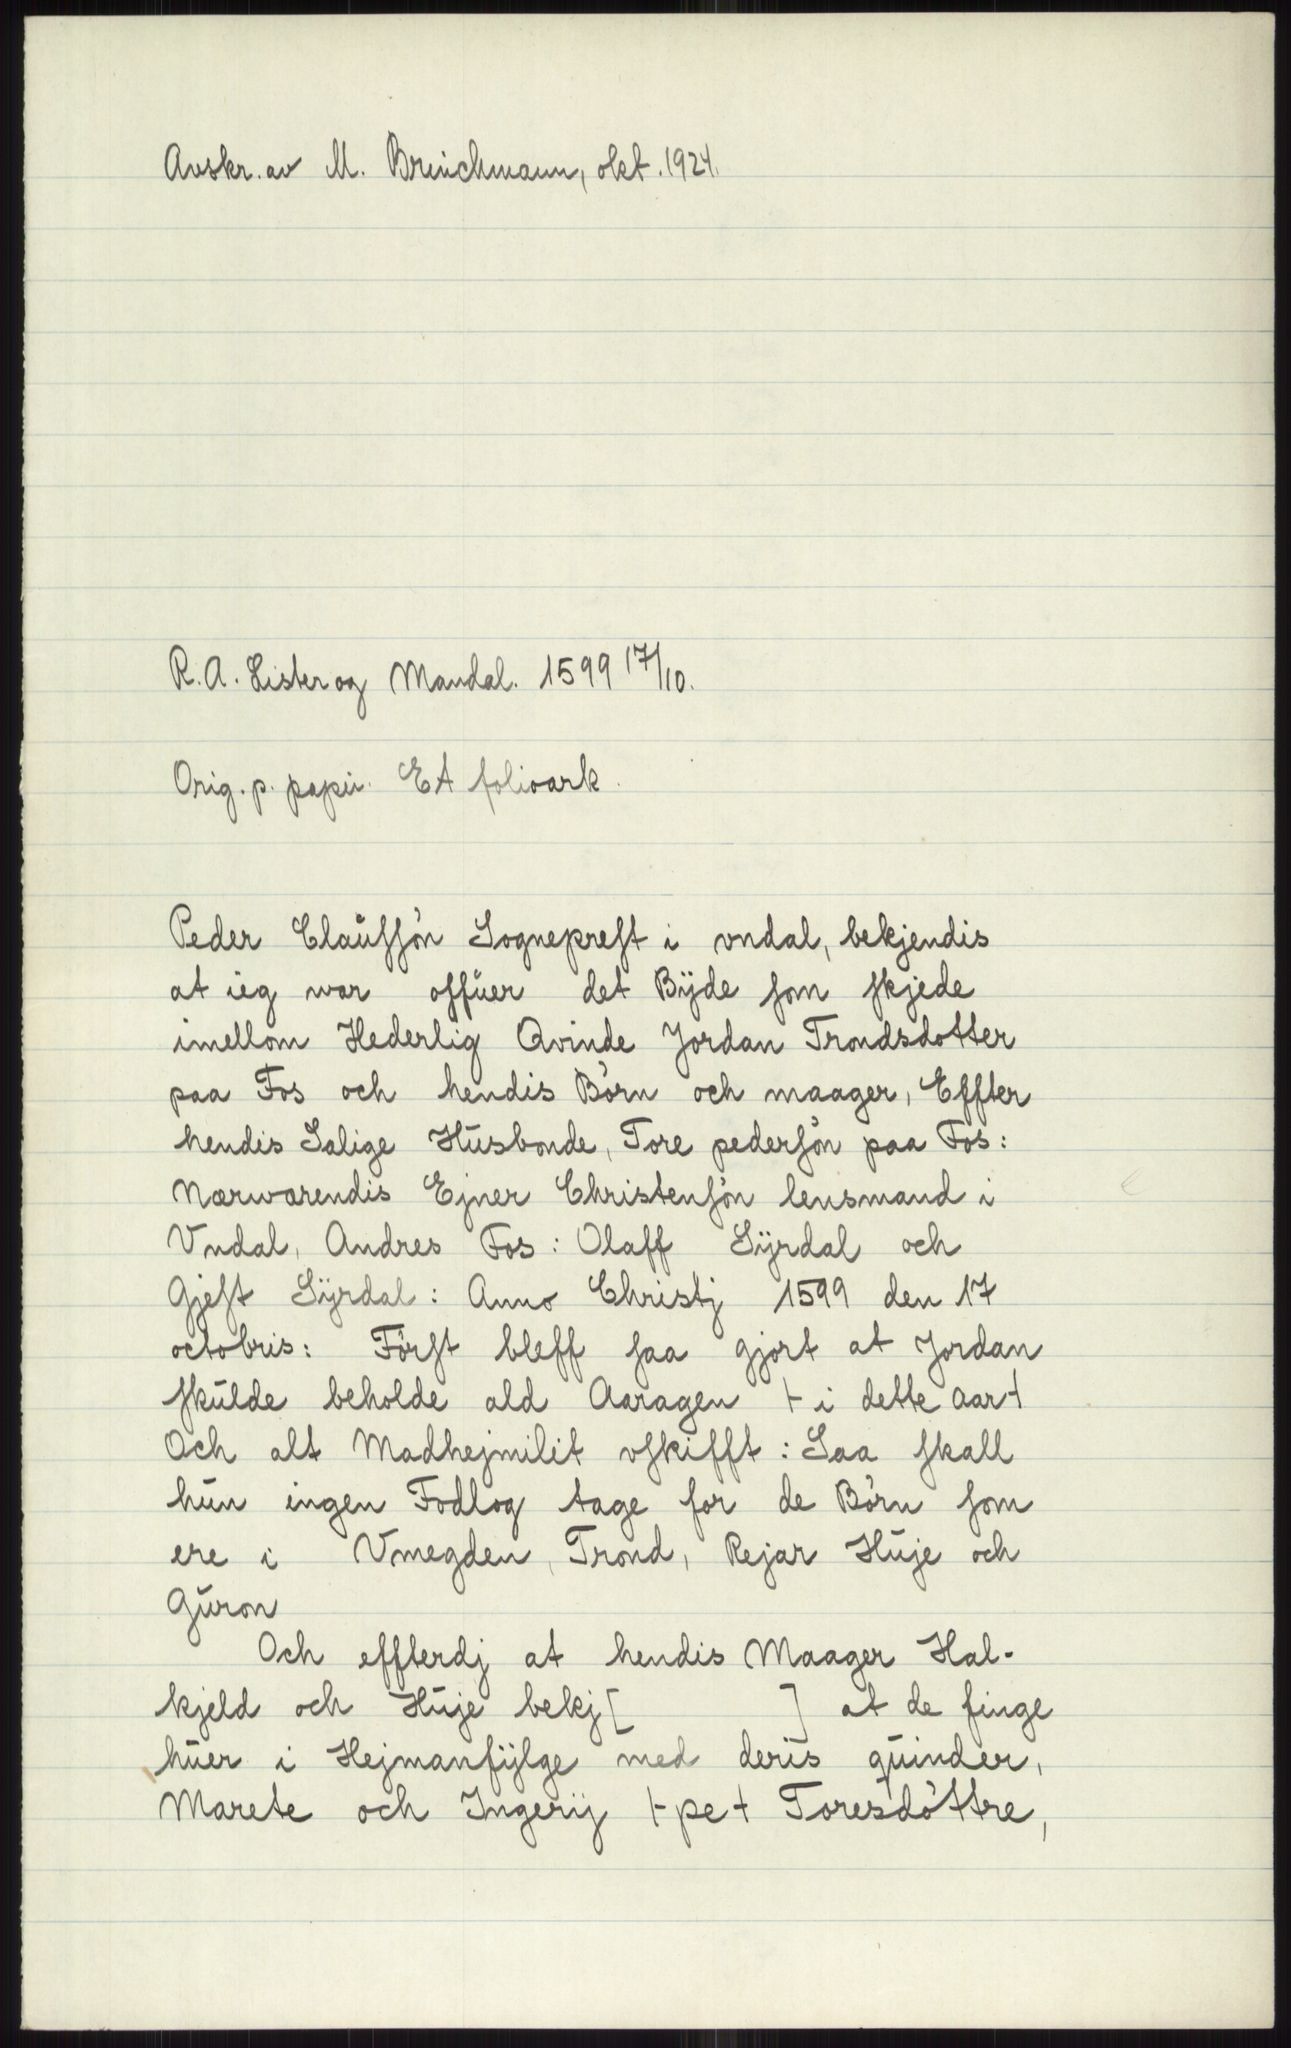 Avskr. av M. Brinchmann, okt. 1924.
R. A. Lister og Mandal. 1599 17/10.
Orig. p. papir. Et folioark.
Peder Claűſſőn Sognepreſt i vndal, bekjendis
at ieg war offűer det Bÿde ſom ſkjede
imellom Hederlig Qvinde Jordan Trondsdotter
paa Fos och hendis Bőrn och maager, Effter
hendis Salige Hűsbonde, Tore pederſőn paa Fos:
Nærwærendis Ejner Chriſtenſőn lensmand i
Vndal, Andres Fos: Olaff Sÿrdal och
Gjeſt Sÿrdal: Anno Christj 1599 den 17
octobris: Főrſt bleff ſaa gjort at Jordan
ſkűlde beholde ald Aaragen ⊢ i dette aar ⊣
Och alt Madhejmilit vſkifft: Saa ſkall
hűn ingen Fodlog tage for de Bőrn ſom
ere i Vmegden, Trond, Rejar Hűje och
Gűron
Och effterdj at hendis Maager Hal-
kjeld och Hűje bekj[ ] at de finge
hűer i Hejmanfÿlge med deris qűinder,
Marete och Ingerÿ ⊢ pe ⊣ Toresdőttre,